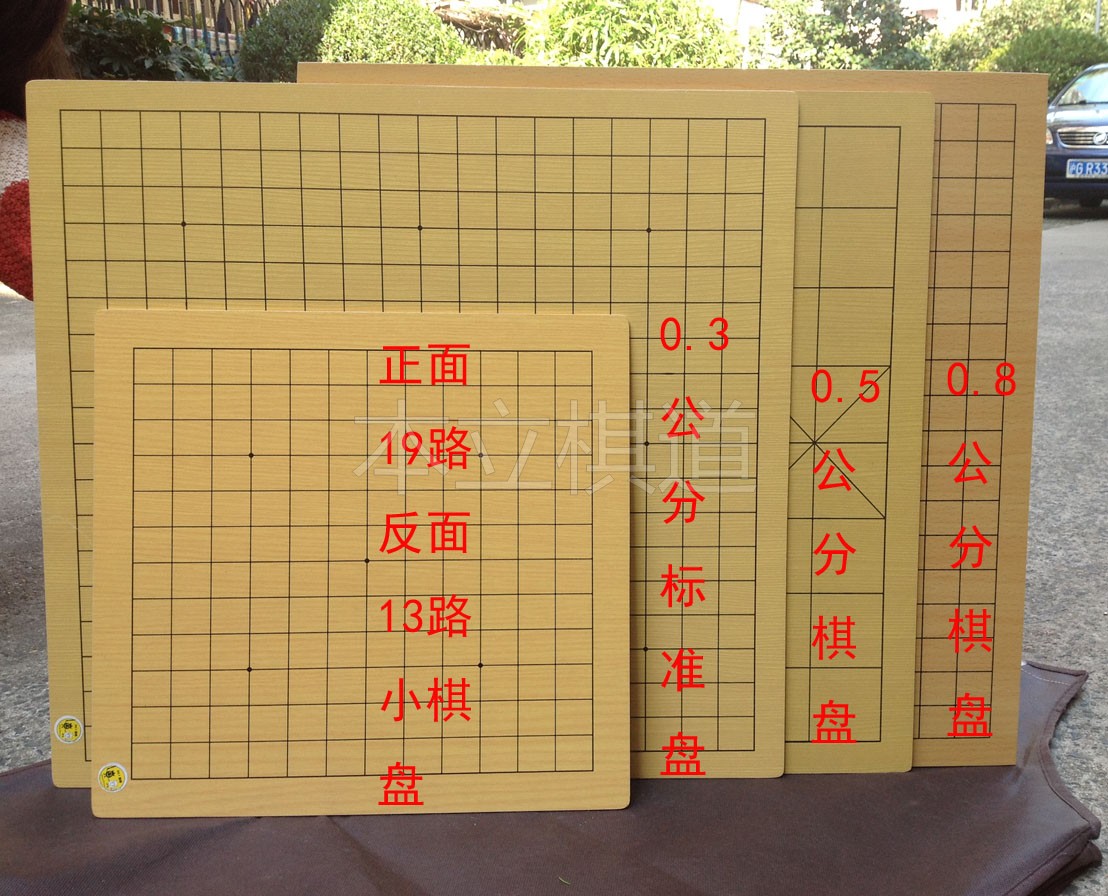 正面
19路
反面
13路
小棋
盘
0.3
公
分
标
准
盘
0.5
公
分
棋
盘
0.8
公
分
棋
盘
本立棋道
沪G R33